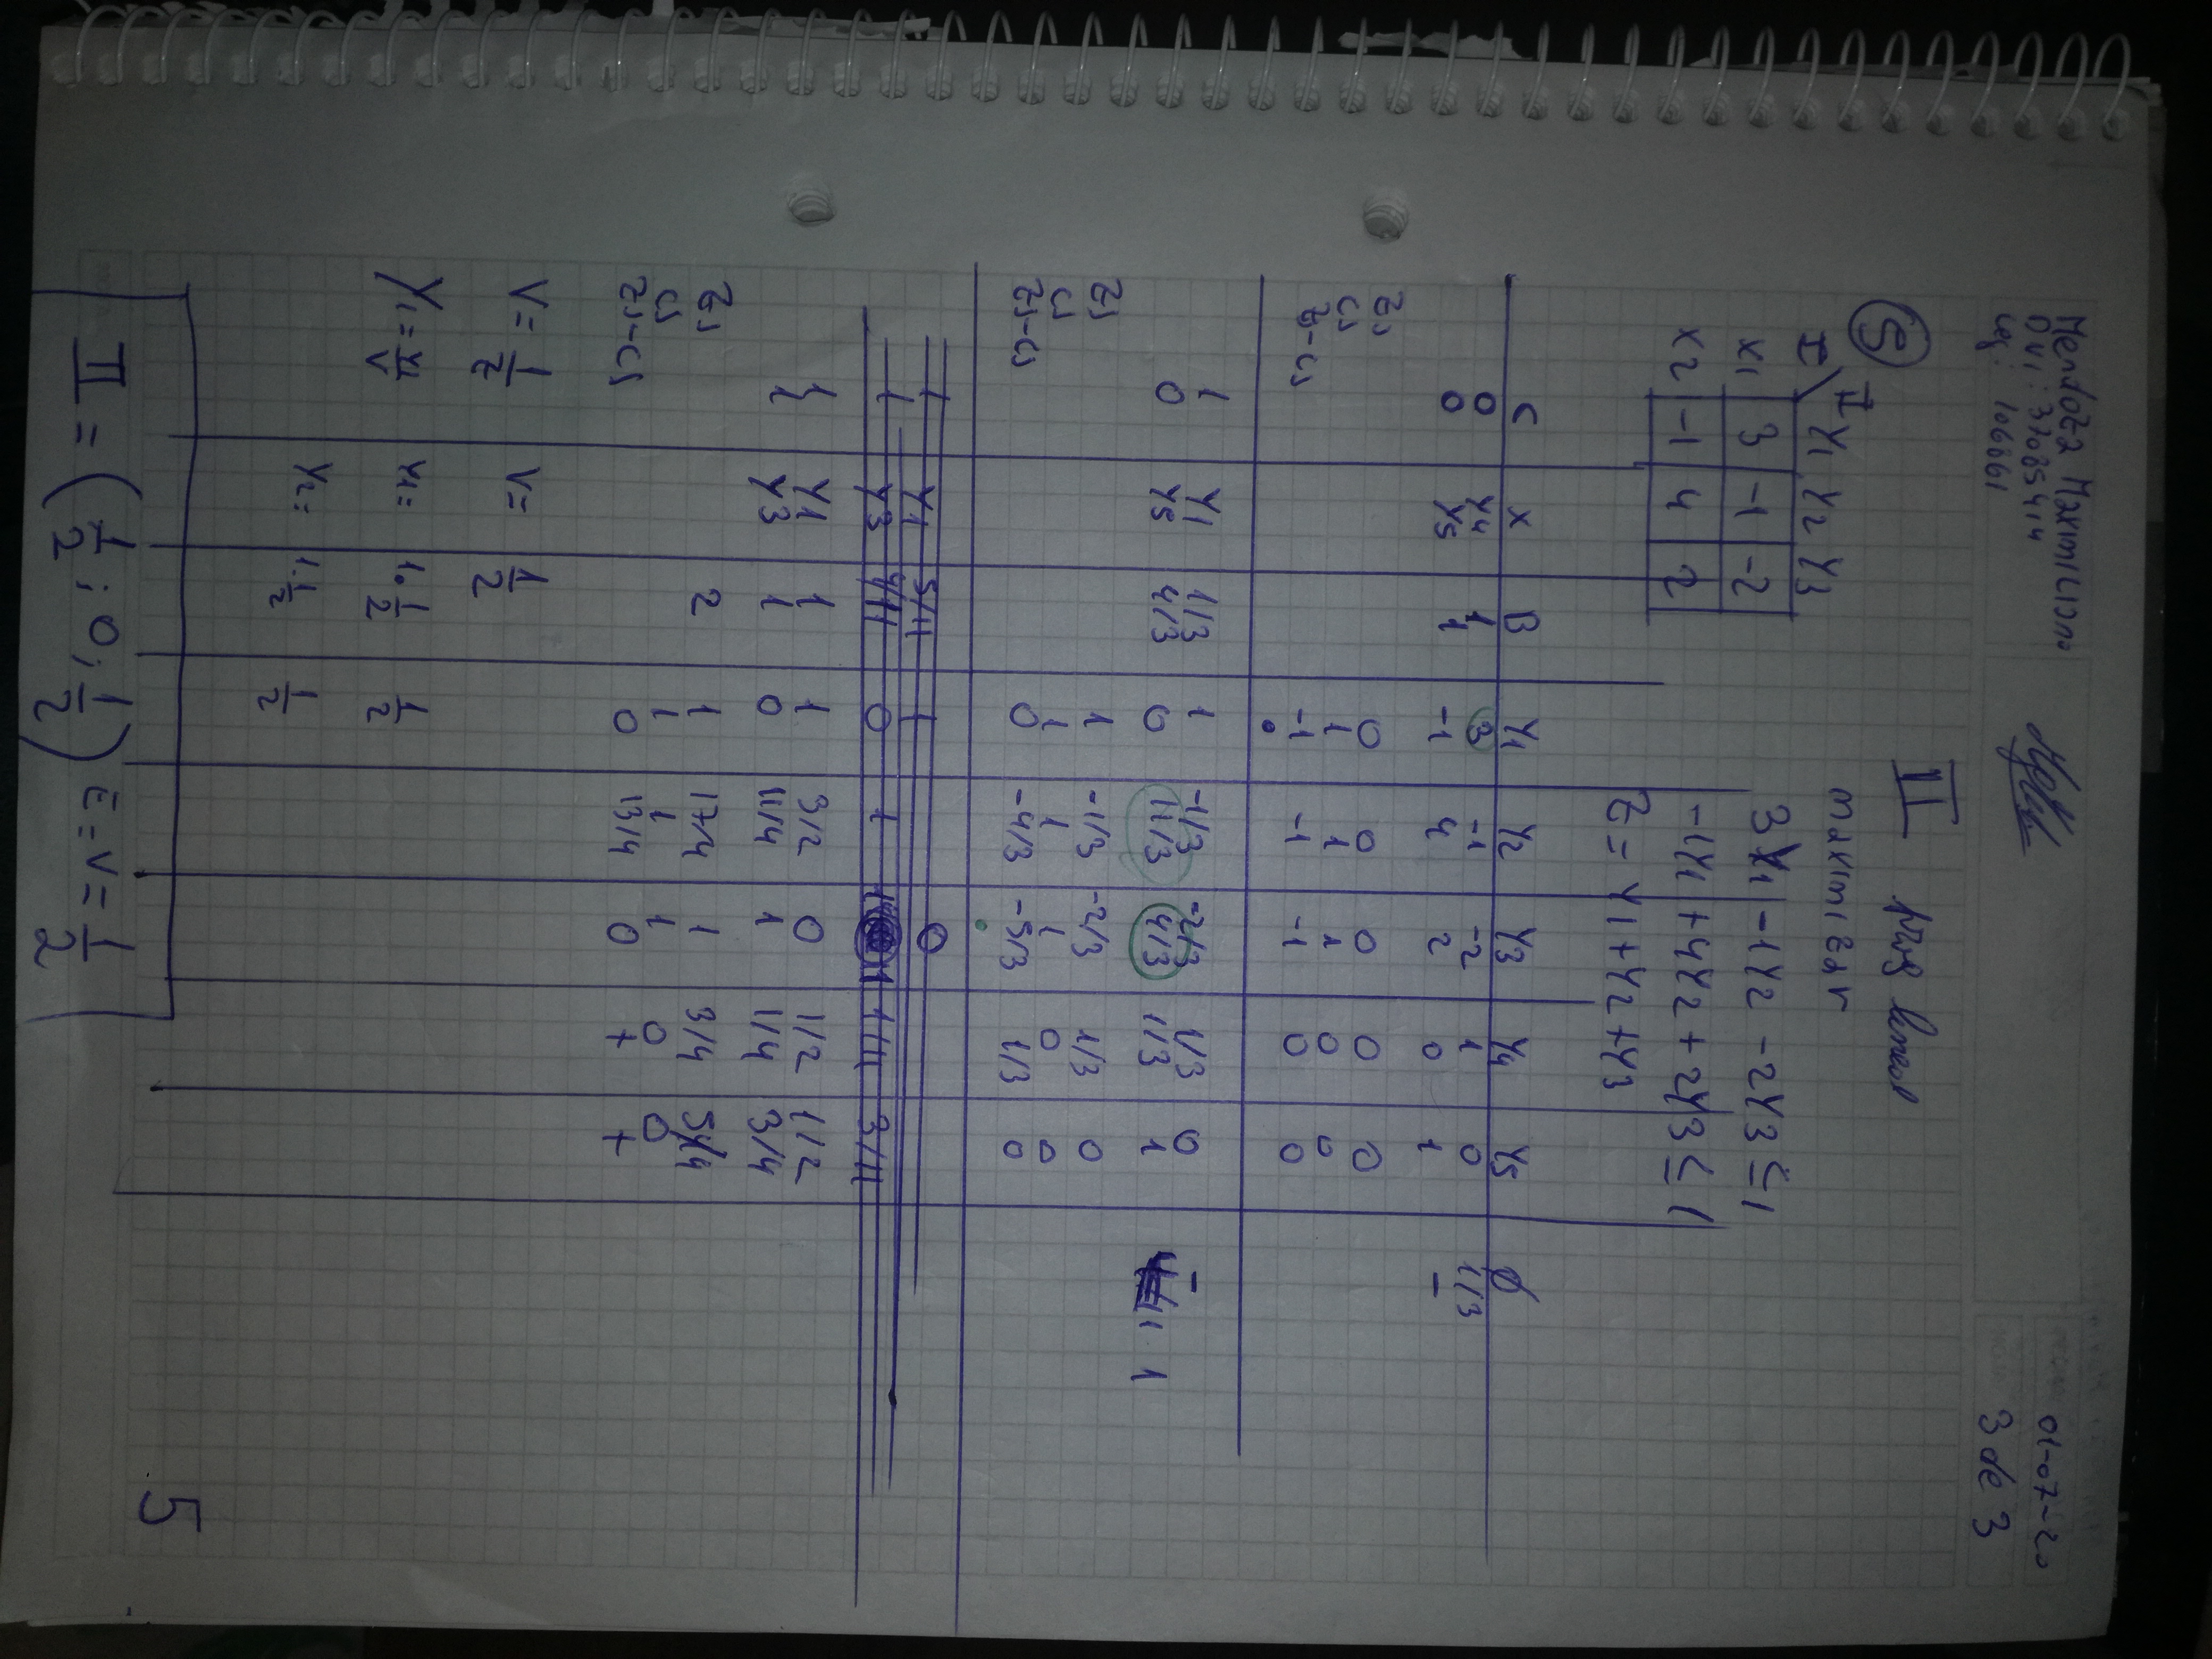 Mendoza Maximiliano
DNI: 37085414
Leg: 106861
01-07-20
3 de 3
5
II prog lineal
maximizar
I \ II Y1 Y2 Y3
X1 3 -1 -2
X2 -1 4 2
3Y1 -1Y2 -2Y3 ≤ 1
-1Y1 +4Y2 +2Y3 ≤ 1
Z = Y1+Y2+Y3
C X B Y1 Y2 Y3 Y4 Y5 Ø
0 Y4 1 3 -1 -2 1 0 1/3
0 Y5 1 -1 4 2 0 1 -
ZJ 0 0 0 0 0
CJ 1 1 1 0 0
ZJ-CJ -1 -1 -1 0 0
1 Y1 1/3 1 -1/3 -2/3 1/3 0 -
0 Y5 4/3 0 11/3 4/3 1/3 1 1
ZJ 1 -1/3 -2/3 1/3 0
CJ 1 1 1 0 0
ZJ-CJ 0 -4/3 -5/3 1/3 0
1 Y1 5/11 1 0
1 Y3 4/11 0 1 1/11 3/11
1 Y1 1 1 3/2 0 1/2 1/2
1 Y3 1 0 11/4 1 1/4 3/4
ZJ 2 1 17/4 1 3/4 5/4
CJ 1 1 1 0 0
ZJ-CJ 0 13/4 0 + +
V = 1/Z V = 1/2
Y1 = Y1/V Y1 = 1.1/2 1/2
Y2 = 1.1/2 1/2
5
II = (1/2 ; 0 ; 1/2) E = V = 1/2